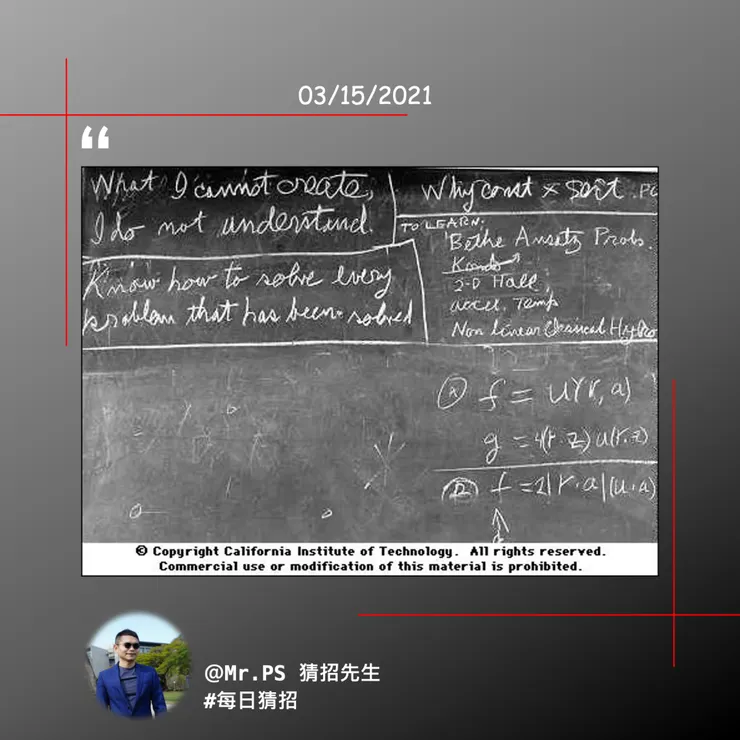 03/15/2021
“
What I cannot create,
I do not understand.
Know how to solve every
problem that has been solved
Why const × sort . PO
TO LEARN:
Bethe Ansatz Probs.
Kondo
2-D Hall
accel. Temp
Non Linear Classical Hydro
Ⓐ f = u(r, a)
g = 4(r·z) u(r, z)
Ⓑ f = 2|r·a|(u·a)
© Copyright California Institute of Technology. All rights reserved.
Commercial use or modification of this material is prohibited.
@Mr.PS 猜招先生
#每日猜招